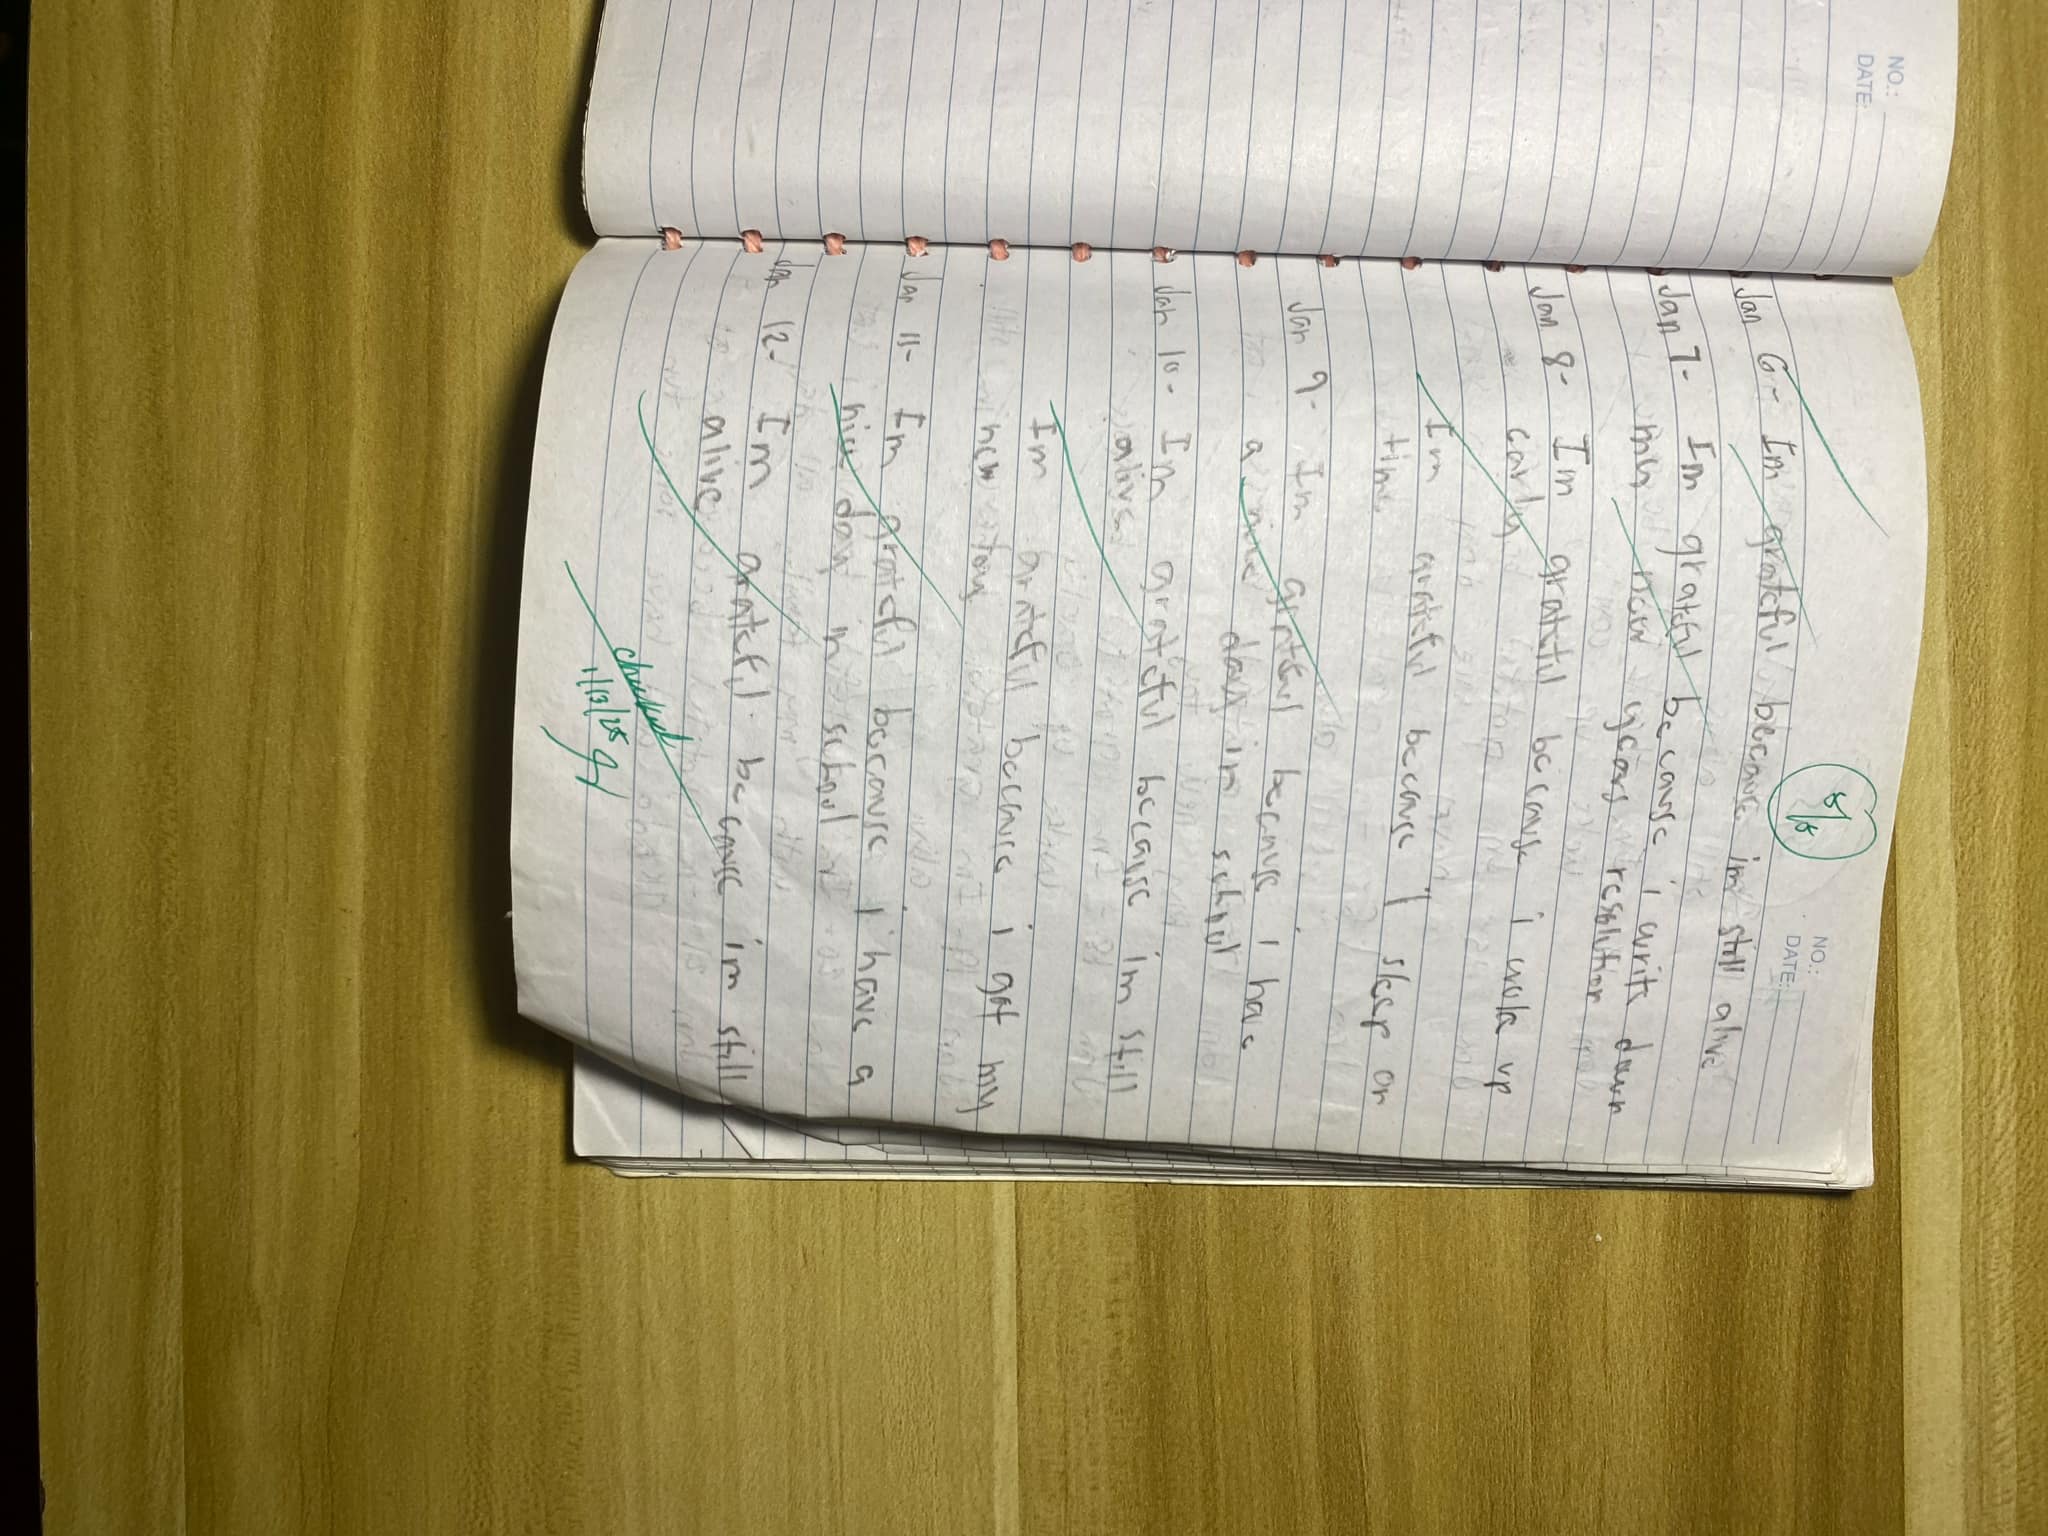 NO.:
DATE:
NO.:
DATE:
Jan 6- Im grateful because im still alive
Jan 7- Im grateful because i write down
my new years resolution
Jan 8- Im grateful because i woke up
early
Im grateful because I sleep on
time
Jan 9- Im grateful because I have
a nice day in school
Jan 10- Im grateful because im still
alive
Im grateful because i got my
new
Jan 11- Im grateful because i have a
nice day in school
Jan 12- Im grateful because im still
alive
checked
1/13/25